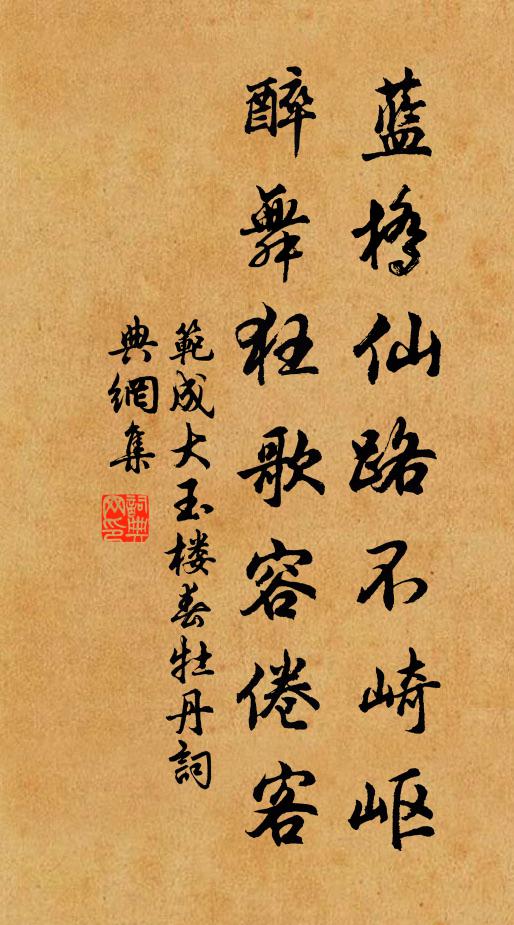 藍橋仙路不崎嶇
醉舞狂歌容倦客
範成大玉楼春牡丹詞
典網集
詞典網印